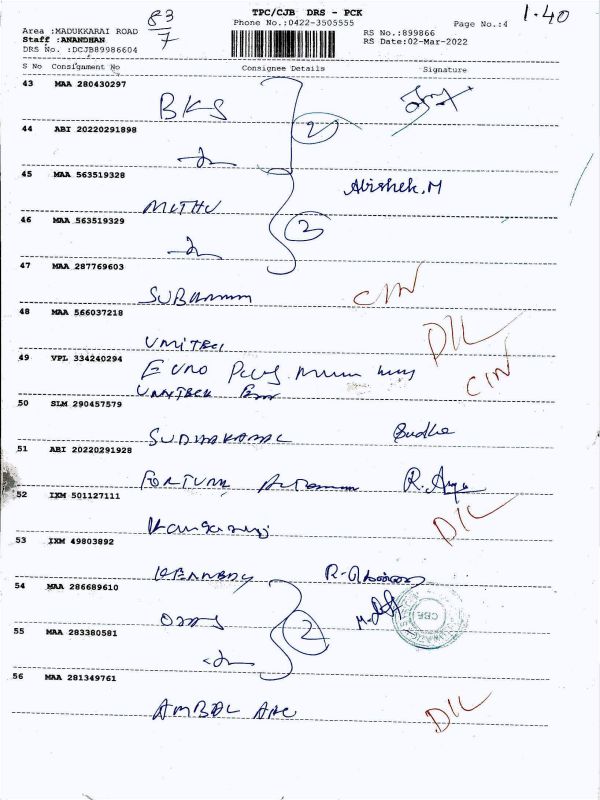 83/7
TPC/CJB DRS - PCK
1.40
Phone No.:0422-3505555
Page No.:4
Area :MADUKKARAI ROAD
RS No.:899866
Staff :ANANDHAN
RS Date:02-Mar-2022
DRS No. :DCJB89986604
S No Consignment No Consignee Details Signature
43 MAA 280430297
BKS
2
44 ABI 20220291898
45 MAA 563519328
Abishek.M
MUTHU
2
46 MAA 563519329
47 MAA 287769603
CIN
48 MAA 566037218
DIL
UNITECH
49 VPL 334240294
EURO
CIN
UNITECH
50 SLM 290457579
SUDHAKARAL Sudha
51 ABI 20220291928
FORTUNA
52 IXM 501127111
DIL
53 IXM 49803892
54 MAA 286689610
2
CBE
55 MAA 283380581
56 MAA 281349761
AMBAL
DIL